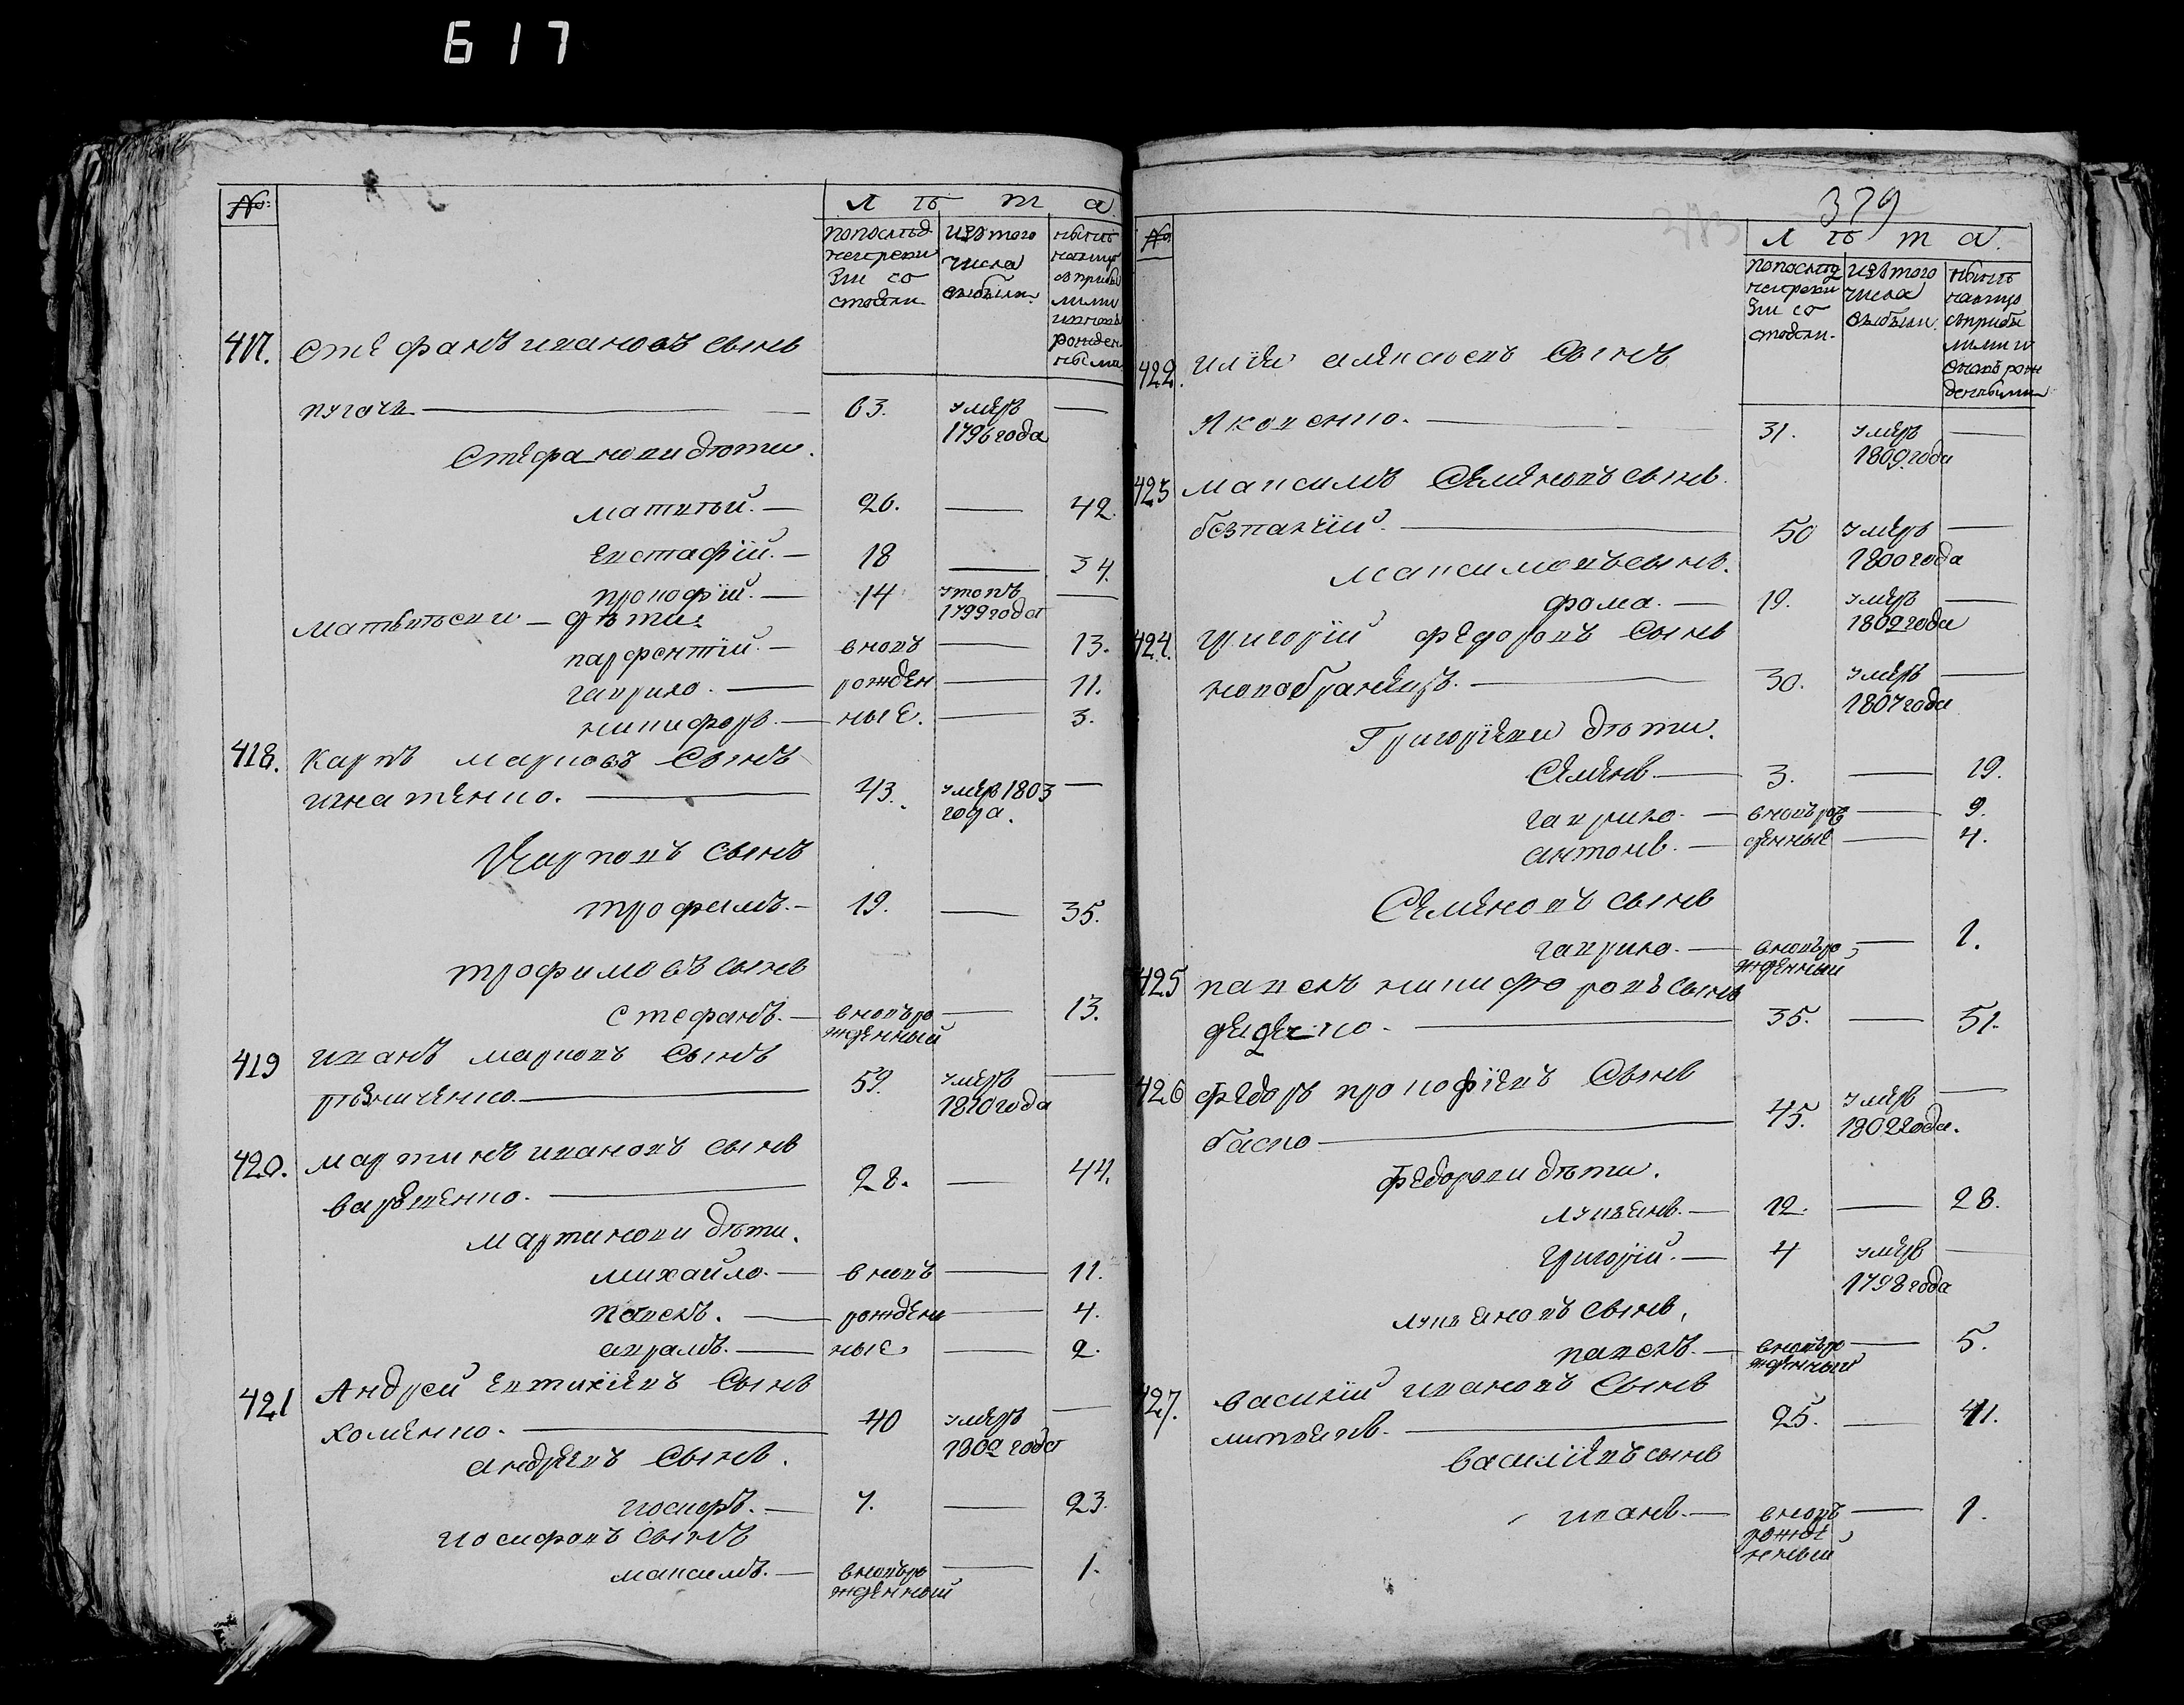 617
№
Л ѣ т а.
по послѣд
ней реви
зіи со
стояли
изъ того
числа
выбыли
нынѣ
налицо
съ прибы
лыми
и вновь
рожден
ными
417. Стефанъ Ивановъ сынъ
Пугачъ — 63. умеръ —
1796 года
Стефановы дѣти.
Матвѣй. — 26. — 42.
Евстафій. — 18 — 34.
Прокофій. — 14 утопъ —
1799 года
Матвѣевы дѣти:
Парфентій. — вновь — 13.
Гаврило. — рожден — 11.
Никифоръ. — ные. — 3.
418. Карпъ Марковъ сынъ
Игнатенко. — 43. умеръ 1803 —
года.
Карповъ сынъ
Трофимъ. — 19. — 35.
Трофимовъ сынъ
Стефанъ. — вновь ро — 13.
жденный
419 Иванъ Марковъ сынъ
Рѣзниченко. — 59. умеръ —
1810 года
420. Мартинъ Ивановъ сынъ
— 28. — 44.
Мартиновы дѣти.
Михайло. — вновь — 11.
Павелъ. — рожден — 4.
Аврамъ. — ные — 2.
421 Андрей Евтихіевъ сынъ
Хоменко. — 40 умеръ —
1802 года
Андреевъ сынъ.
Иосифъ. — 7. — 23.
Иосифовъ сынъ
Максимъ. — вновь ро — 1.
жденный
379
№
Л ѣ т а.
по послѣд
ней реви
зіи со
стояли.
изъ того
числа
выбыли.
нынѣ
налицо
съ прибы
лыми и
вновь рож
денными
422. Илья Алексѣевъ сынъ
Яковенко. — 31. умеръ —
1809 года
423 Максимъ Семеновъ сынъ.
Безпалчій. — 50 умеръ —
1800 года
Максимовъ сынъ.
Фома. — 19. умеръ —
1802 года
424. Григорій Федоровъ сынъ
Новобранецъ. — 30. умеръ —
1807 года
Григоріевы дѣти.
Семенъ. — 3. — 19.
Гаврило. — вновь рож — 9.
Антонъ. — денные — 4.
Семеновъ сынъ
Гаврило. — вновь ро — 1.
жденный
425 Павелъ Никифоровъ сынъ
— 35. — 51.
426 Федоръ Прокофіевъ сынъ
Баско — 45. умеръ —
1802 года.
Федоровы дѣти.
Лукьянъ. — 12. — 28.
Григорій. — 4 умеръ —
1798 года
Лукьяновъ сынъ.
Павелъ. — вновь ро — 5.
жденный
427. Василій Ивановъ сынъ
Литвинъ. — 25. — 41.
Василіевъ сынъ
Иванъ. — вновь — 1.
рожде
нный